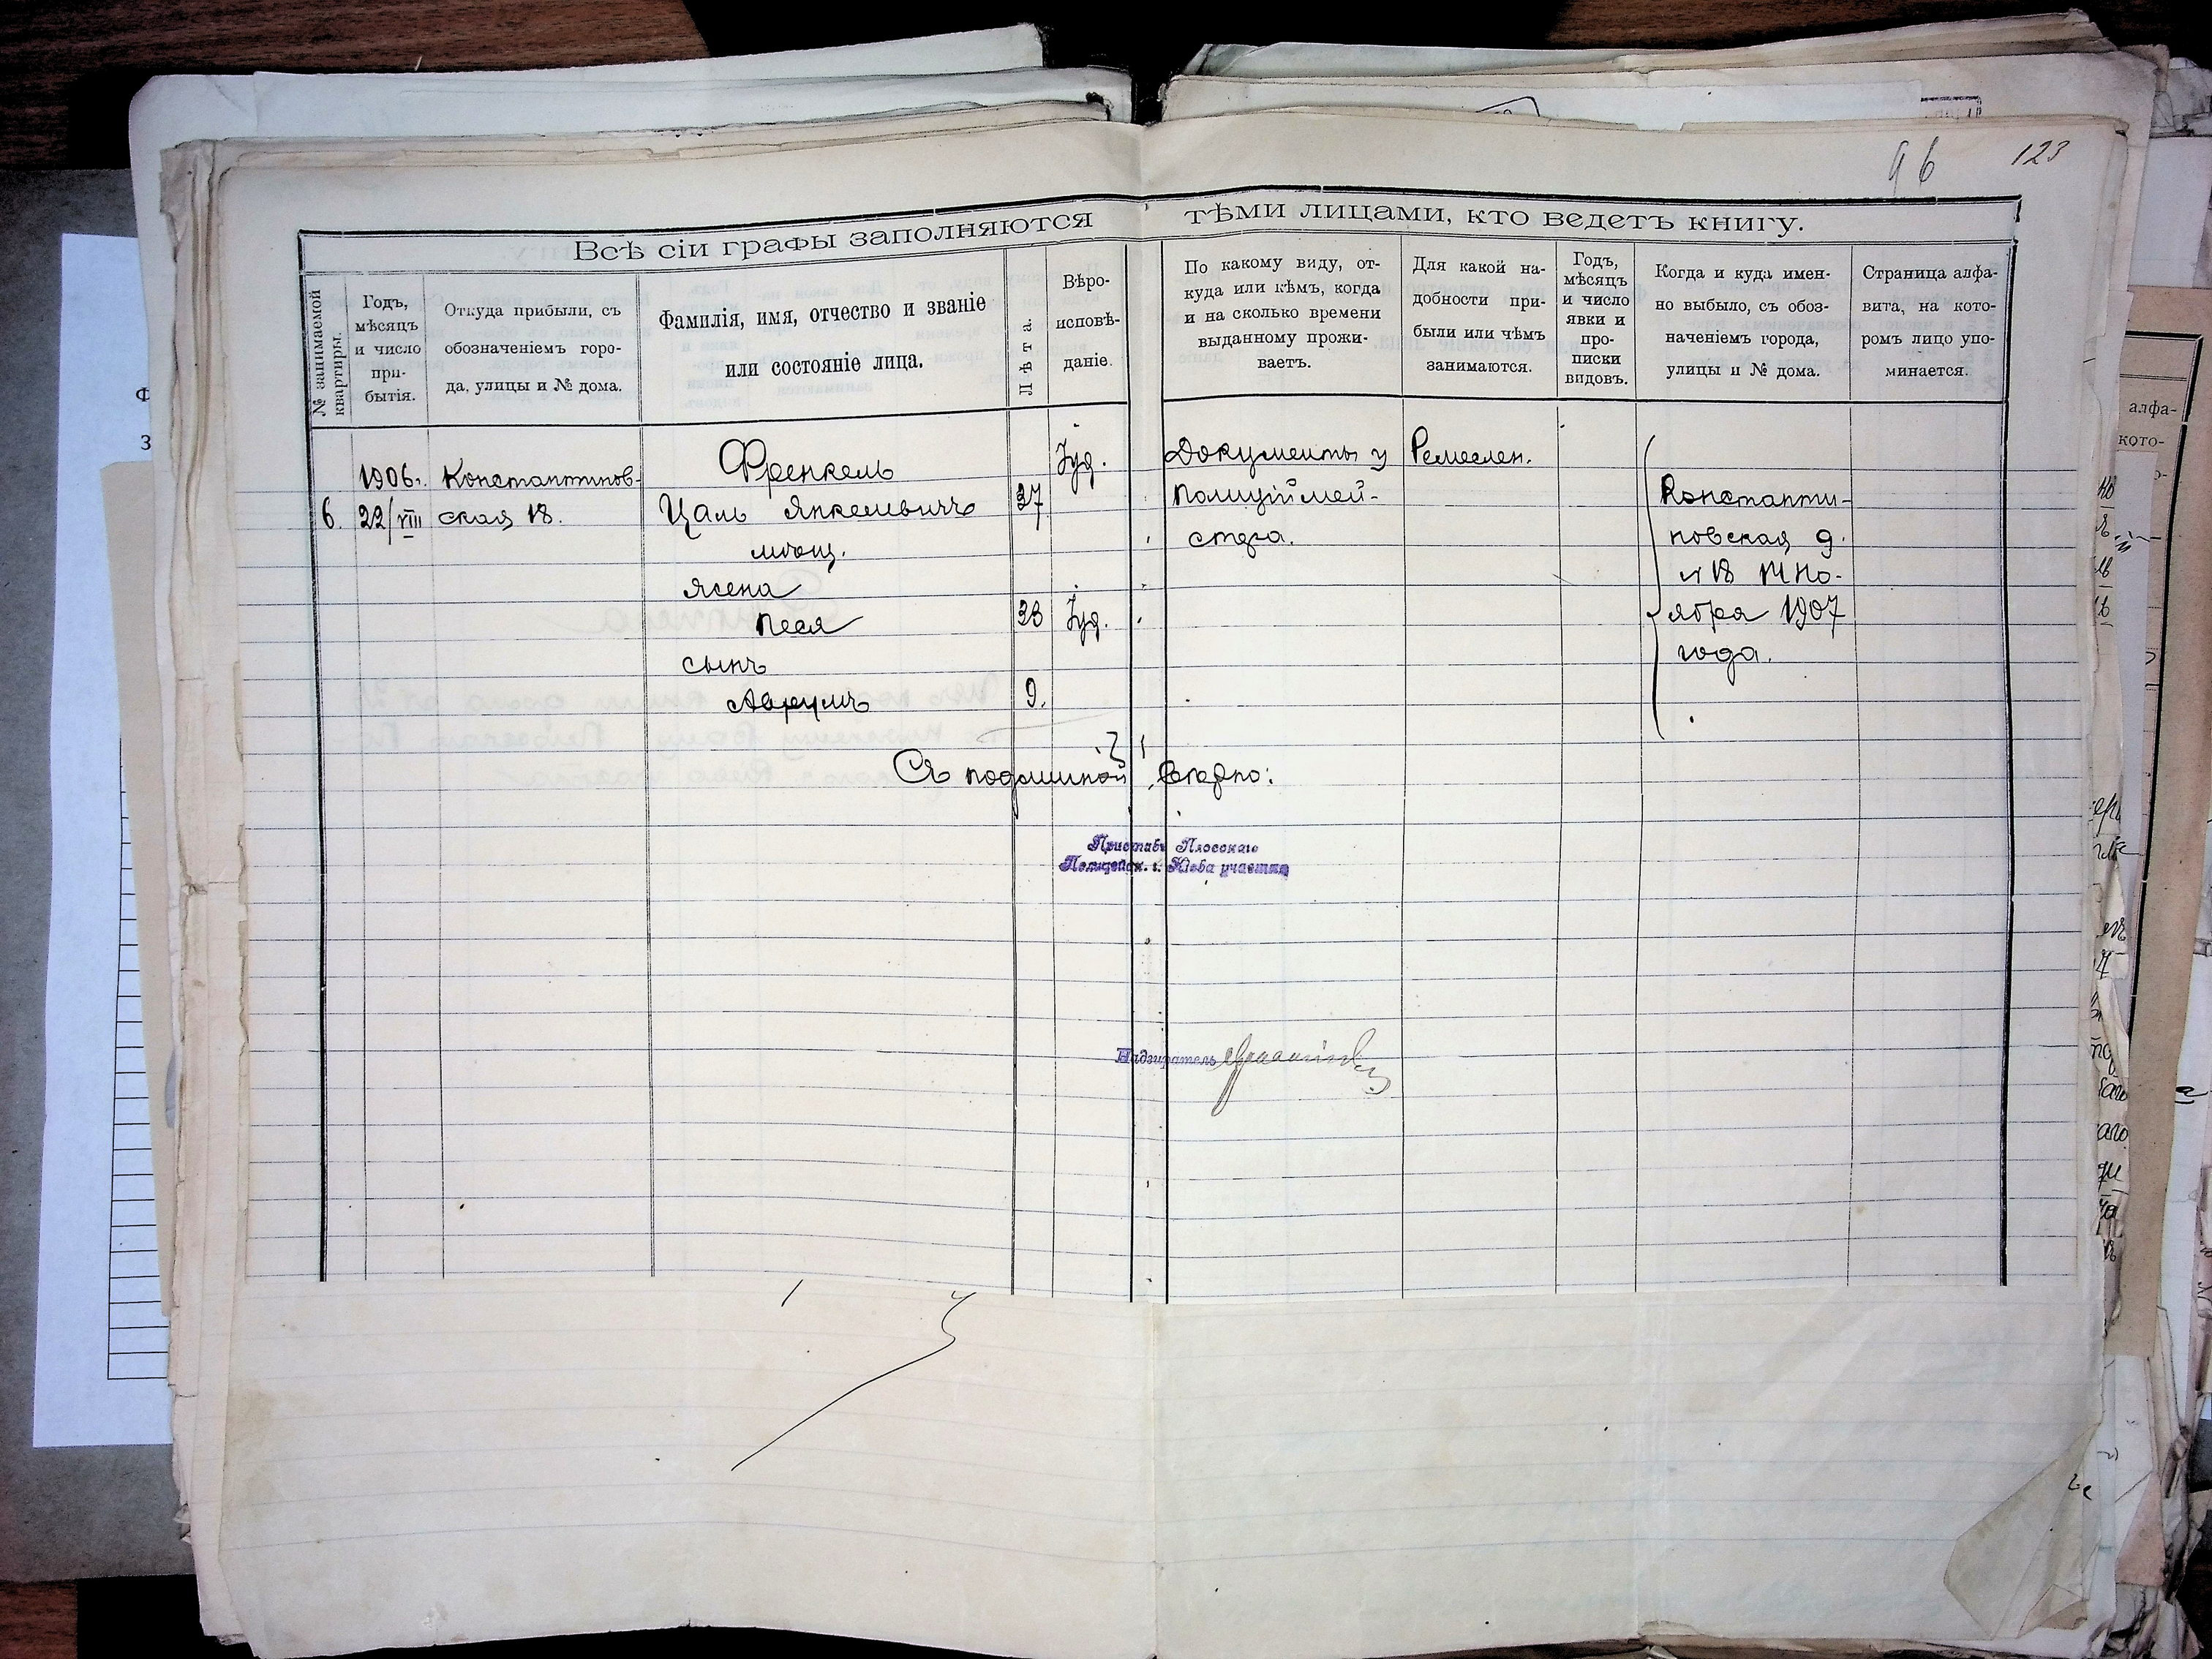 96 123
Всѣ сіи графы заполняются тѣми лицами, кто ведетъ книгу.
№ занимаемой
квартиры.
Годъ,
мѣсяцъ
и число
при-
бытія.
Откуда прибыли, съ
обозначеніемъ горо-
да, улицы и № дома.
Фамилія, имя, отчество и званіе
или состояніе лица.
Лѣта.
Вѣро-
исповѣ-
даніе.
По какому виду, от-
куда или кѣмъ, когда
и на сколько времени
выданному прожи-
ваетъ.
Для какой на-
добности при-
были или чѣмъ
занимаются.
Годъ,
мѣсяцъ
и число
явки и
про-
писки
видовъ.
Когда и куда имен-
но выбыло, съ обоз-
наченіемъ города,
улицы и № дома.
Страница алфа-
вита, на кото-
ромъ лицо упо-
минается.
6.
1906г.
22/VIII
Константинов-
ская 18.
Френкель
Цаль Янкелевичъ
мѣщ.
жена
Песя
сынъ
Аврумъ
37
33
9.
Іуд.
Іуд.
Документы у
полиціймей-
стера.
Ремеслен.
Константи-
новская д.
№ 18 14 Но-
ября 1907
года.
Съ подлинной вѣрно:
Приставъ Плосскаго
Полицейск. г. Кіева участка
Надзиратель
алфа-
кото-